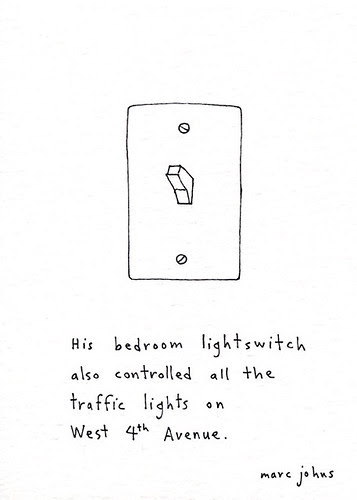 His bedroom lightswitch
also controlled all the
traffic lights on
West 4th Avenue.
marc johns